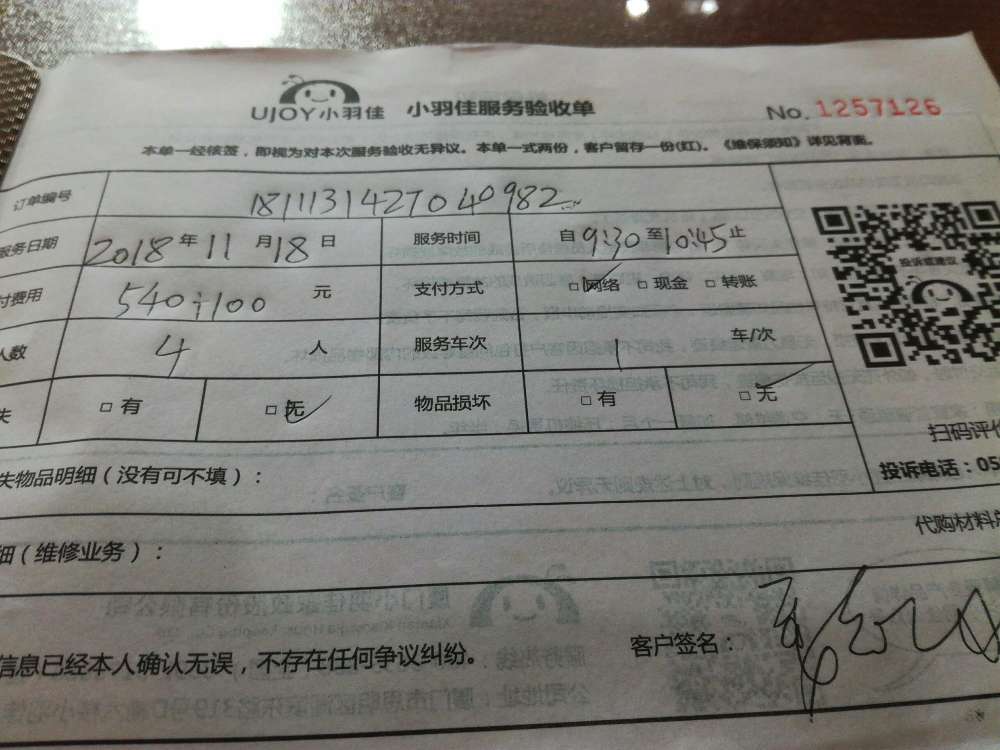 UJOY小羽佳 小羽佳服务验收单 No. 1257126
本单一经核签，即视为对本次服务验收无异议。本单一式两份，客户留存一份(红)。《维保须知》详见背面。
订单编号 1811131427040982
服务日期 2018年11月18日 服务时间 自9:30至10:45止
付费用 540+100 元 支付方式 □网络 □现金 □转账
人数 4 人 服务车次 1 车/次
失 □有 □无 物品损坏 □有 □无
投诉或建议
扫码评价
失物品明细（没有可不填）： 投诉电话：05
代购材料
细（维修业务）：
信息已经本人确认无误，不存在任何争议纠纷。 客户签名：